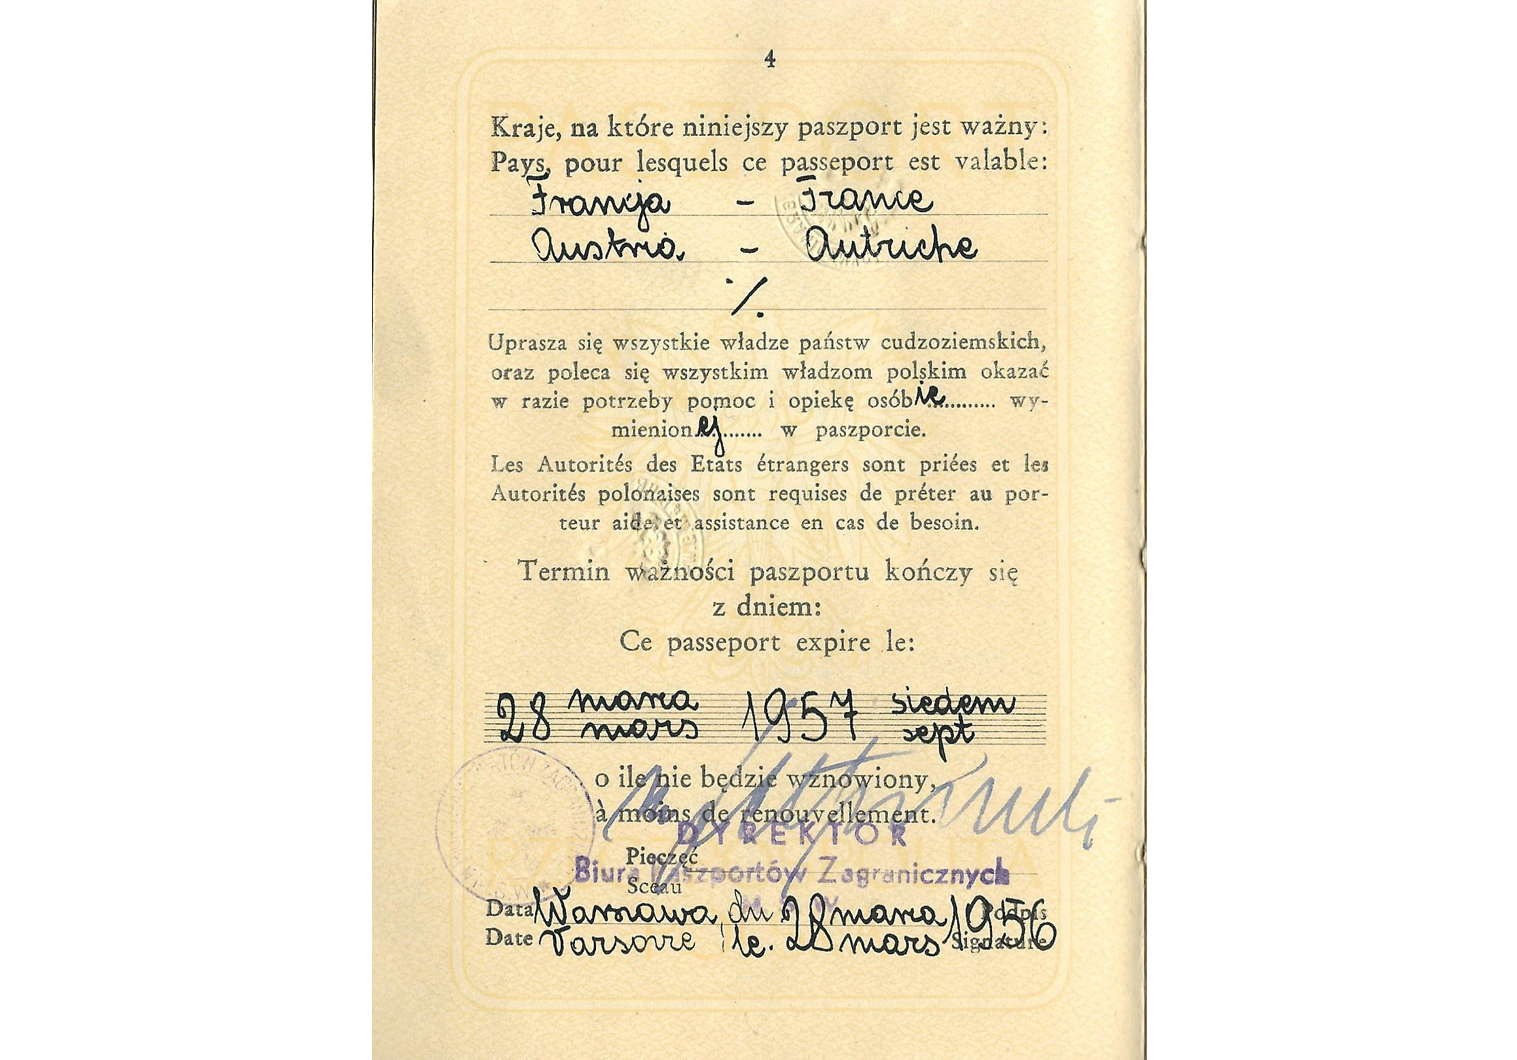 4
Kraje, na które niniejszy paszport jest ważny:
Pays, pour lesquels ce passeport est valable:
Francja - France
Austria - Autriche
./.
Uprasza się wszystkie władze państw cudzoziemskich,
oraz poleca się wszystkim władzom polskim okazać
w razie potrzeby pomoc i opiekę osóbie.......... wy-
mienionej....... w paszporcie.
Les Autorités des Etats étrangers sont priées et les
Autorités polonaises sont requises de préter au por-
teur aide et assistance en cas de besoin.
Termin ważności paszportu kończy się
z dniem:
Ce passeport expire le:
28 marca 1957 siedem
mars sept
o ile nie będzie wznowiony,
à moins de renouvellement.
DYREKTOR
Pieczęć
Biura Paszportów Zagranicznych
Sceau
M S W
Data Warszawa, dn 28 marca 1956 Podpis
Date Varsovie le. 28 mars Signature